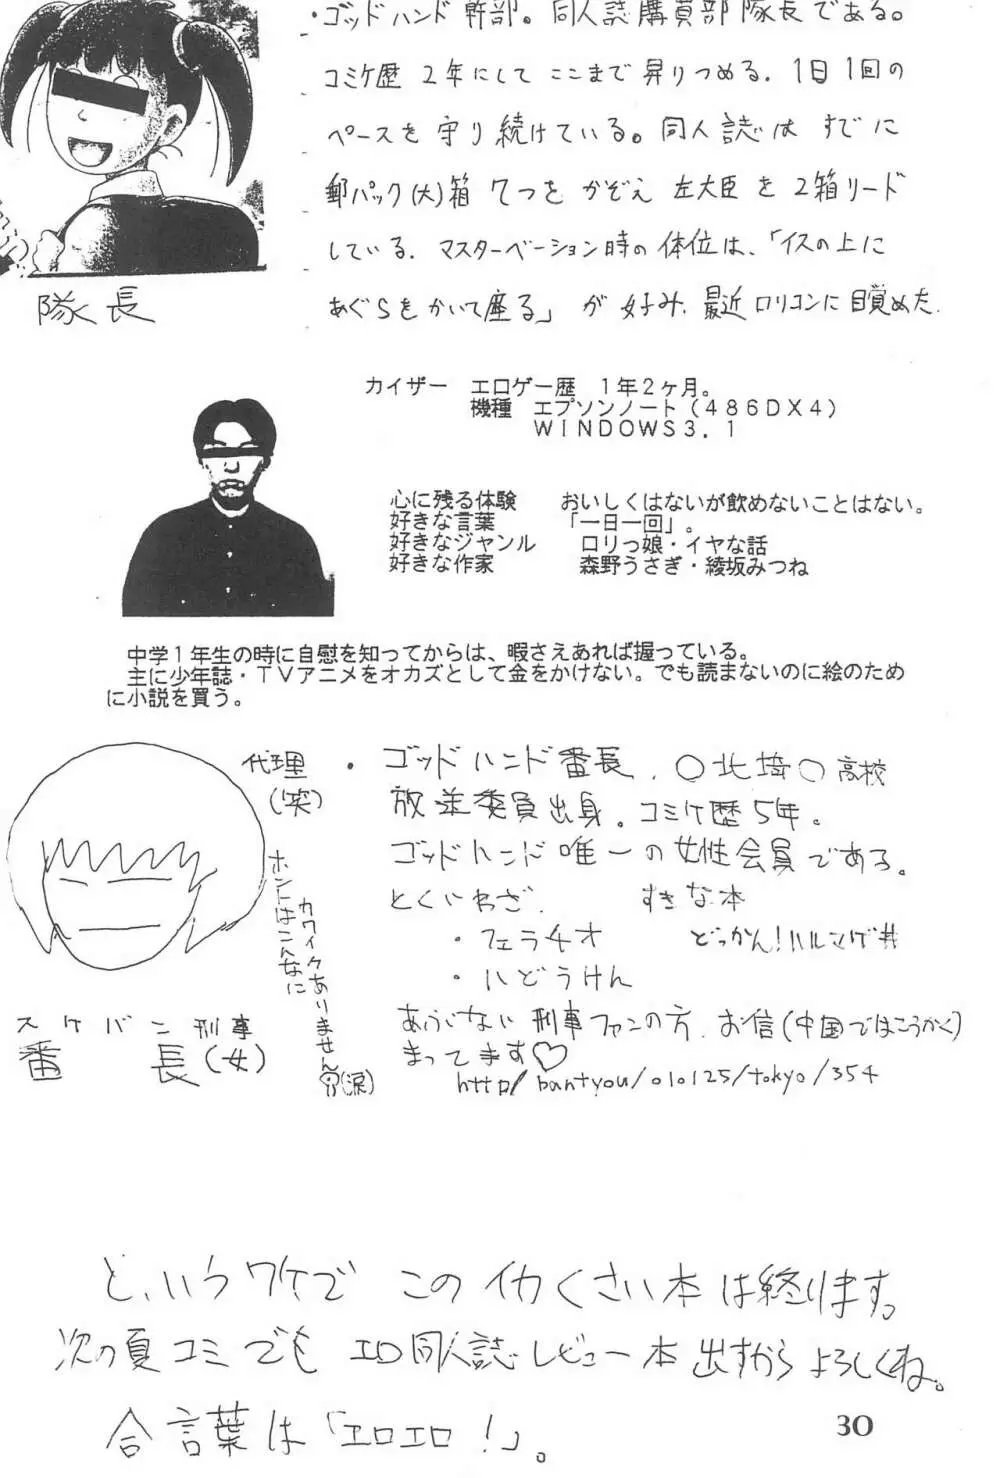 ・ゴッドハンド幹部。同人誌購買部隊長である。
コミケ歴2年にしてここまで昇りつめる。1日1回の
ペースを守り続けている。同人誌はすでに
郵パック(大)箱7つをかぞえ左大臣を2箱リード
している。マスターベーション時の体位は、「イスの上に
あぐらをかいて座る」が好み。最近ロリコンに目覚めた。
隊長
カイザー エロゲー歴 1年2ヶ月。
機種 エプソンノート(486DX4)
WINDOWS3.1
心に残る体験 おいしくはないが飲めないことはない。
好きな言葉 「一日一回」。
好きなジャンル ロリっ娘・イヤな話
好きな作家 森野うさぎ・綾坂みつね
中学1年生の時に自慰を知ってからは、暇さえあれば握っている。
主に少年誌・TVアニメをオカズとして金をかけない。でも読まないのに絵のため
に小説を買う。
代理
(笑)
ホントはこんなに
カワイクありません
(涙)
スケバン刑事
番長(女)
・ゴッドハンド番長。○北埼○高校
放送委員出身。コミケ歴5年。
ゴッドハンド唯一の女性会員である。
とくいわざ。 すきな本
・フェラチオ どっかん!ハルマゲ丼
・ハどうけん
あぶない刑事ファンの方、お信(中国ではこうかく)
まってます♡
http/bantyou/010125/tokyo/354
と、いうワケでこのイカくさい本は終ります。
次の夏コミでもエロ同人誌レビュー本出すからよろしくね。
合言葉は「エロエロ!」。
30